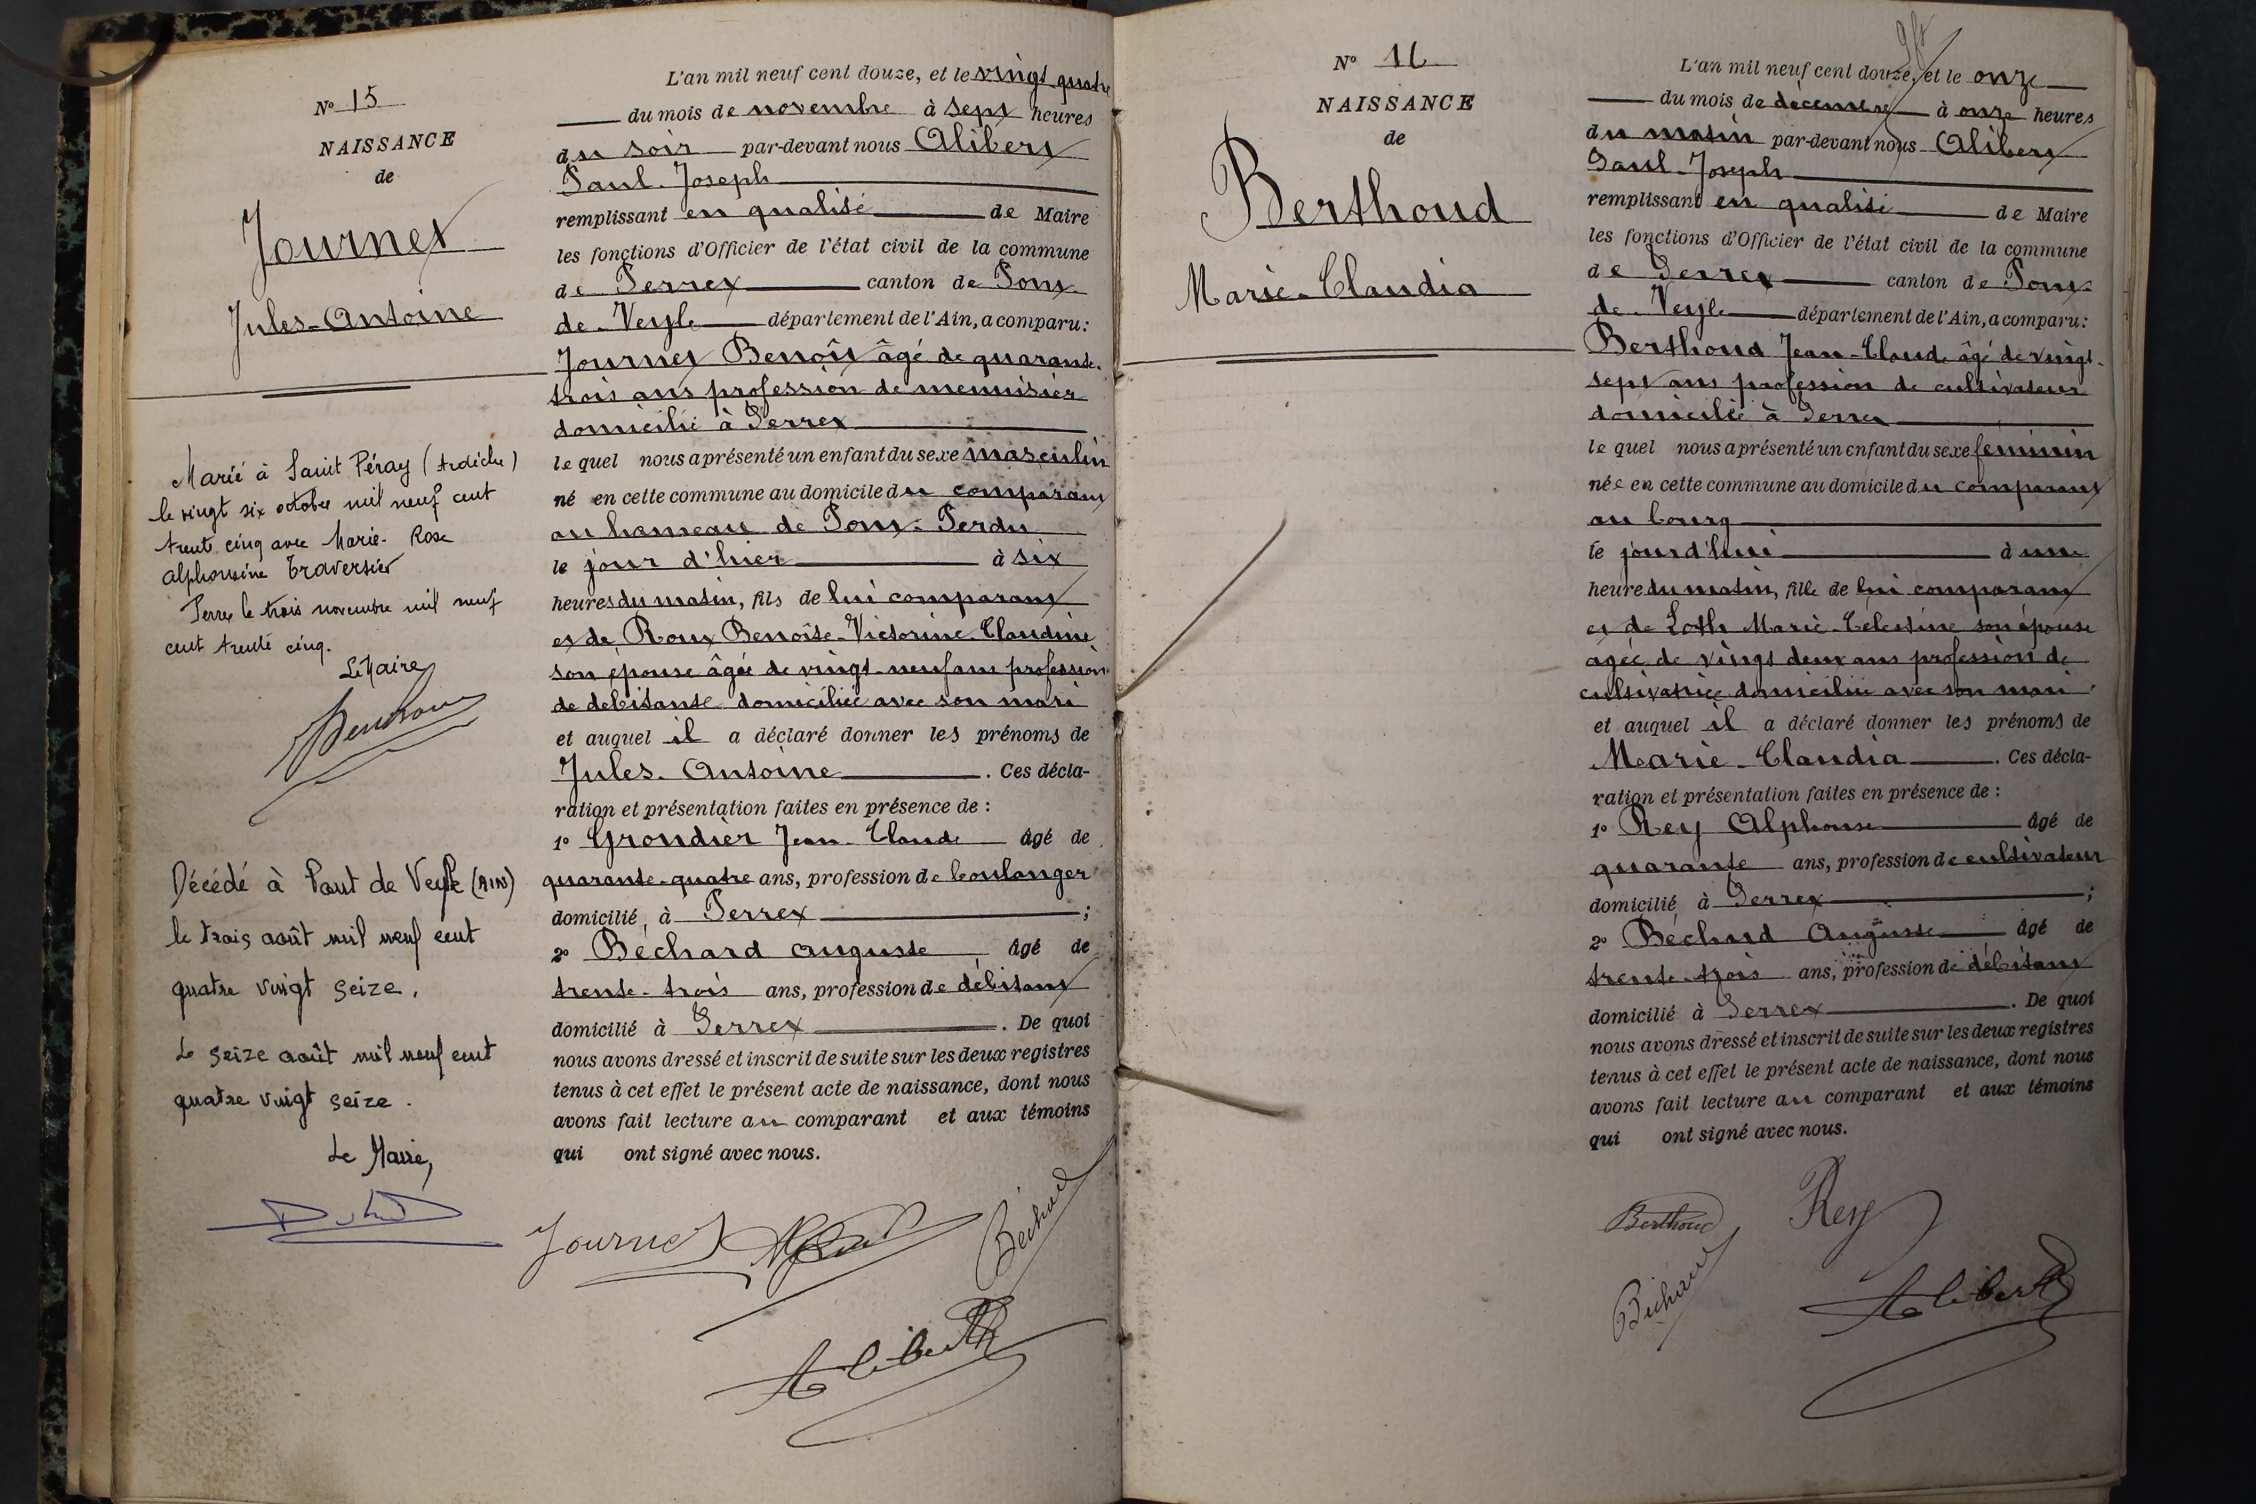 N° 15
NAISSANCE
de
Journet
Jules-Antoine
Marié à Saint Péray (Ardèche)
le vingt six octobre mil neuf cent
trente cinq avec Marie-Rose
alphonsine Traversier
Perrex le trois novembre mil neuf
cent trente cinq.
Le Maire
Décédé à Pont de Veyle (AIN)
le trois août mil neuf cent
quatre vingt seize.
Le seize août mil neuf cent
quatre vingt seize.
Le Maire,
L'an mil neuf cent douze, et le vingt quatre
du mois de novembre à sept heures
du soir par-devant nous Alibert
Paul-Joseph
remplissant en qualité de Maire
les fonctions d'Officier de l'état civil de la commune
de Perrex canton de Pont-
de-Veyle département de l'Ain, a comparu:
Journet Benoît âgé de quarante-
trois ans profession de menuisier
domicilié à Perrex
le quel nous a présenté un enfant du sexe masculin
né en cette commune au domicile du comparant
au hameau de Pont-Perdu
le jour d'hier à six
heures du matin, fils de lui comparant
et de Roux Benoîte-Victorine Claudine
son épouse âgée de vingt-neuf ans profession
de debitante domiciliée avec son mari
et auquel il a déclaré donner les prénoms de
Jules-Antoine. Ces décla-
ration et présentation faites en présence de :
1° Grondier Jean-Claude âgé de
quarante-quatre ans, profession de boulanger
domicilié à Perrex ;
2° Béchard Auguste âgé de
trente-trois ans, profession de débitant
domicilié à Perrex. De quoi
nous avons dressé et inscrit de suite sur les deux registres
tenus à cet effet le présent acte de naissance, dont nous
avons fait lecture au comparant et aux témoins
qui ont signé avec nous.
Journet
Béchard
Alibert
N° 16
NAISSANCE
de
Berthoud
Marie-Claudia
L'an mil neuf cent douze, et le onze
du mois de décembre à onze heures
du matin par-devant nous Alibert
Paul-Joseph
remplissant en qualité de Maire
les fonctions d'Officier de l'état civil de la commune
de Perrex canton de Pont-
de-Veyle département de l'Ain, a comparu:
Berthoud Jean-Claude âgé de vingt-
sept ans profession de cultivateur
domicilié à Perrex
le quel nous a présenté un enfant du sexe feminin
née en cette commune au domicile du comparant
au bourg
le jourd'hui à une
heure du matin, fille de lui comparant
et de Loth Marie-Célestine son épouse
agée de vingt deux ans profession de
cultivatrice domiciliée avec son mari
et auquel il a déclaré donner les prénoms de
Marie-Claudia. Ces décla-
ration et présentation faites en présence de :
1° Rey Alphonse âgé de
quarante ans, profession de cultivateur
domicilié à Perrex ;
2° Béchard Auguste âgé de
trente-trois ans, profession de débitant
domicilié à Perrex. De quoi
nous avons dressé et inscrit de suite sur les deux registres
tenus à cet effet le présent acte de naissance, dont nous
avons fait lecture au comparant et aux témoins
qui ont signé avec nous.
Berthoud Rey
Béchard
Alibert